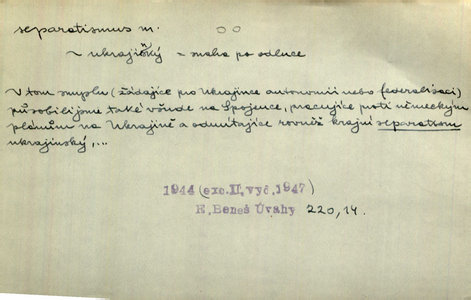 separatismus m.
~ ukrajinský = snaha po odluce
V tom smyslu (žádajíce pro Ukrajince autonomii nebo federalisaci)
působili jsme také všude na Spojence, pracujíce proti německým
plánům na Ukrajině a odmítajíce rovněž krajní separatism
ukrajinský,...
1944 (exc.II,vyd.1947)
E.Beneš Úvahy 220,14.